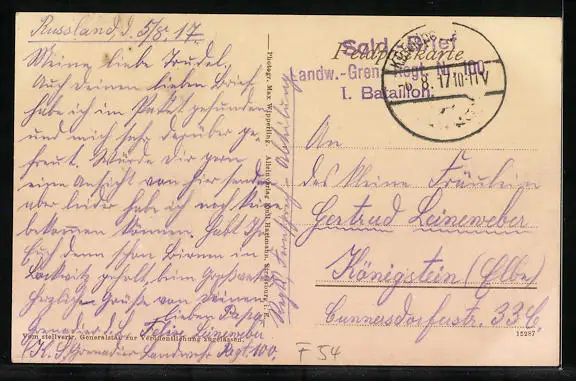 Russland, d. 5/8. 17.
Meine liebe Trudel.
Auch deinen lieben Brief
habe ich im Paket gefunden
und mich sehr darüber ge-
freut. Würde Dir gern
eine Ansicht von hier senden
aber leider habe ich noch keine
bekommen können. Habt Ihr
Euch denn schon Birnen in
Lockwitz geholt, beim
Herzliche Grüße von Deinem
lieben Papa
Grenadier d. L. Leineweber
(K. S.) Grenadier Landwehr Regt. 100,
Vom stellvertr. Generalstab zur Veröffentlichung zugelassen.
Photogr. Max Wipperling. Alleinvertrag Hartmann, Strassburg i. E.
Feldpostkarte
Sold.-Brief
Landw.-Gren.-Regt. Nr. 100
I. Bataillon.
8. 17 10-11 V
An
das kleine Fräulein
Gertrud Leineweber
Königstein (Elbe)
Cunnersdorferstr. 33 C.
15287
F 54